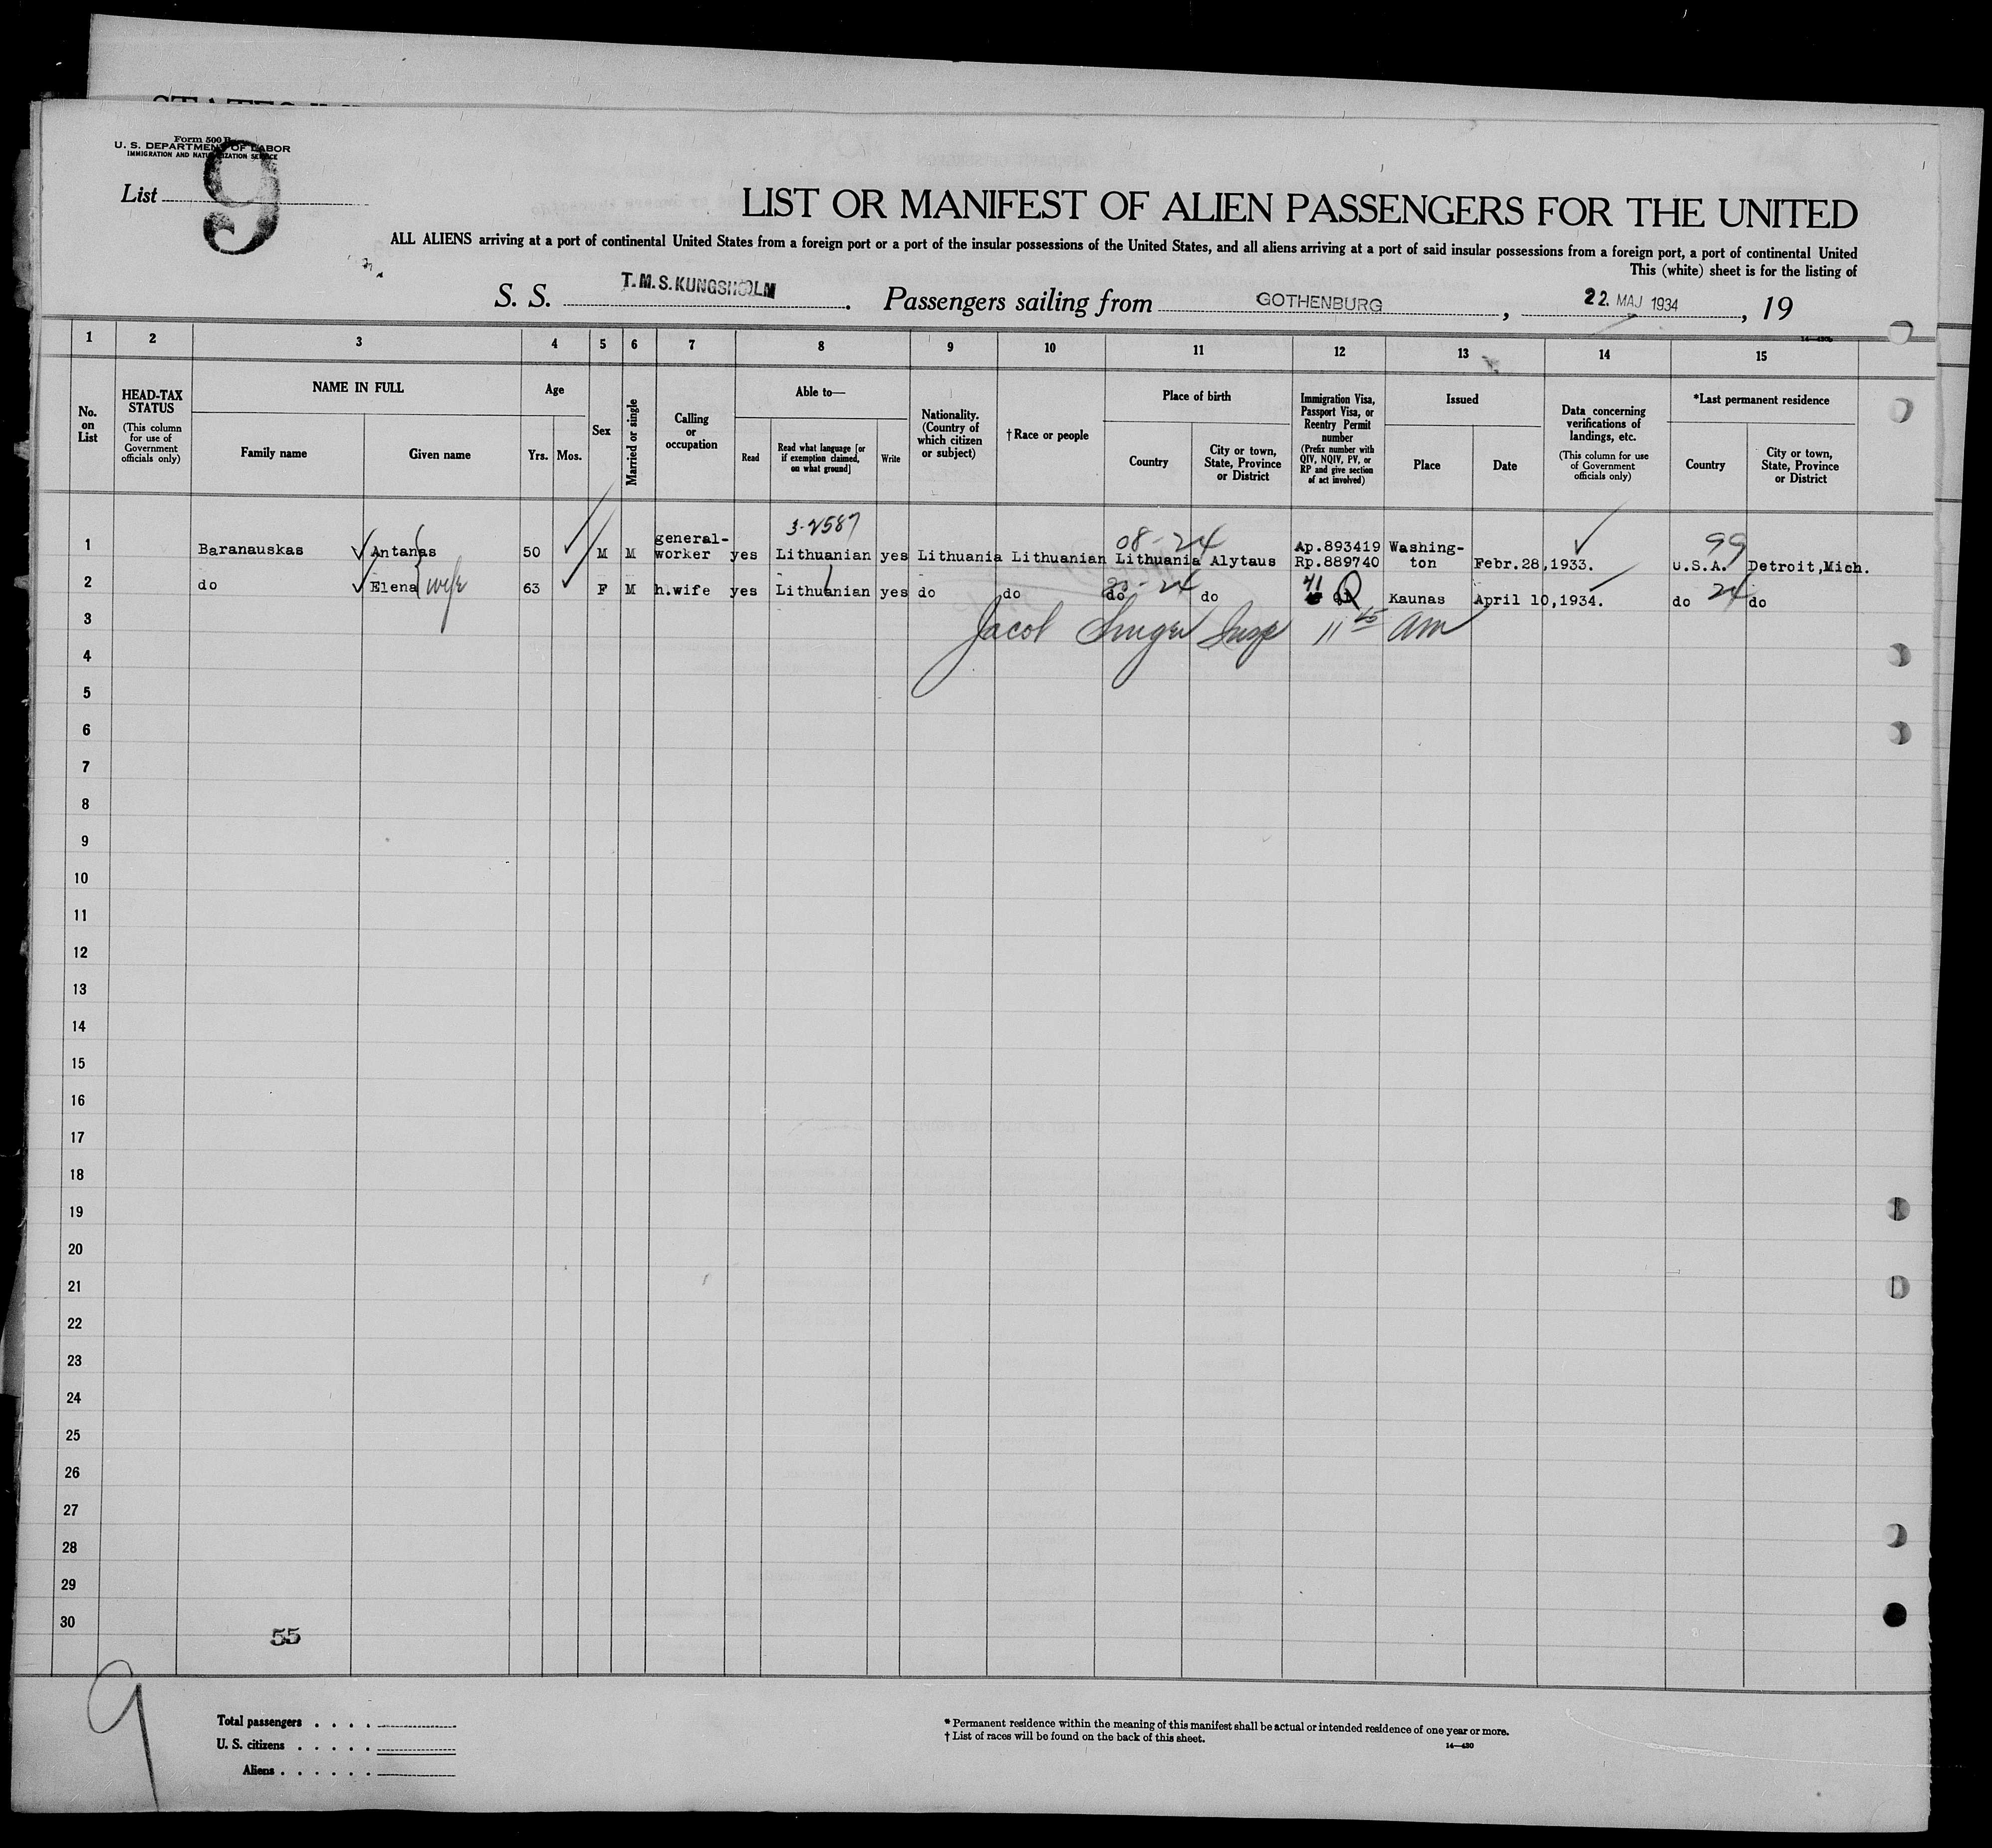 Form 500 B
U. S. DEPARTMENT OF LABOR
IMMIGRATION AND NATURALIZATION SERVICE
List 9
LIST OR MANIFEST OF ALIEN PASSENGERS FOR THE UNITED
ALL ALIENS arriving at a port of continental United States from a foreign port or a port of the insular possessions of the United States, and all aliens arriving at a port of said insular possessions from a foreign port, a port of continental United
This (white) sheet is for the listing of
S. S. T.M.S. KUNGSHOLM. Passengers sailing from GOTHENBURG, 22. MAJ 1934, 19
1 2 3 4 5 6 7 8 9 10 11 12 13 14 15
No. on List
HEAD-TAX STATUS
(This column for use of Government officials only)
NAME IN FULL
Family name
Given name
Age
Yrs.
Mos.
Sex
Married or single
Calling or occupation
Able to—
Read
Read what language [or if exemption claimed, on what ground]
Write
Nationality. (Country of which citizen or subject)
†Race or people
Place of birth
Country
City or town, State, Province or District
Immigration Visa, Passport Visa, or Reentry Permit number
(Prefix number with QIV, NQIV, PV, or RP and give section of act involved)
Issued
Place
Date
Data concerning verifications of landings, etc.
(This column for use of Government officials only)
*Last permanent residence
Country
City or town, State, Province or District
3-2587
08-24
99
1 Baranauskas Antanas 50 M M general-worker yes Lithuanian yes Lithuania Lithuanian Lithuania Alytaus Ap.893419 Rp.889740 Washing-ton Febr.28,1933. U.S.A. Detroit,Mich.
2 do Elena wife 63 F M h.wife yes Lithuanian yes do do do do 41 Q Kaunas April 10,1934. do 24 do
Jacob Singer Insp 11 15 am
3
4
5
6
7
8
9
10
11
12
13
14
15
16
17
18
19
20
21
22
23
24
25
26
27
28
29
30
55
9
Total passengers
U. S. citizens
Aliens
* Permanent residence within the meaning of this manifest shall be actual or intended residence of one year or more.
† List of races will be found on the back of this sheet.
14—430